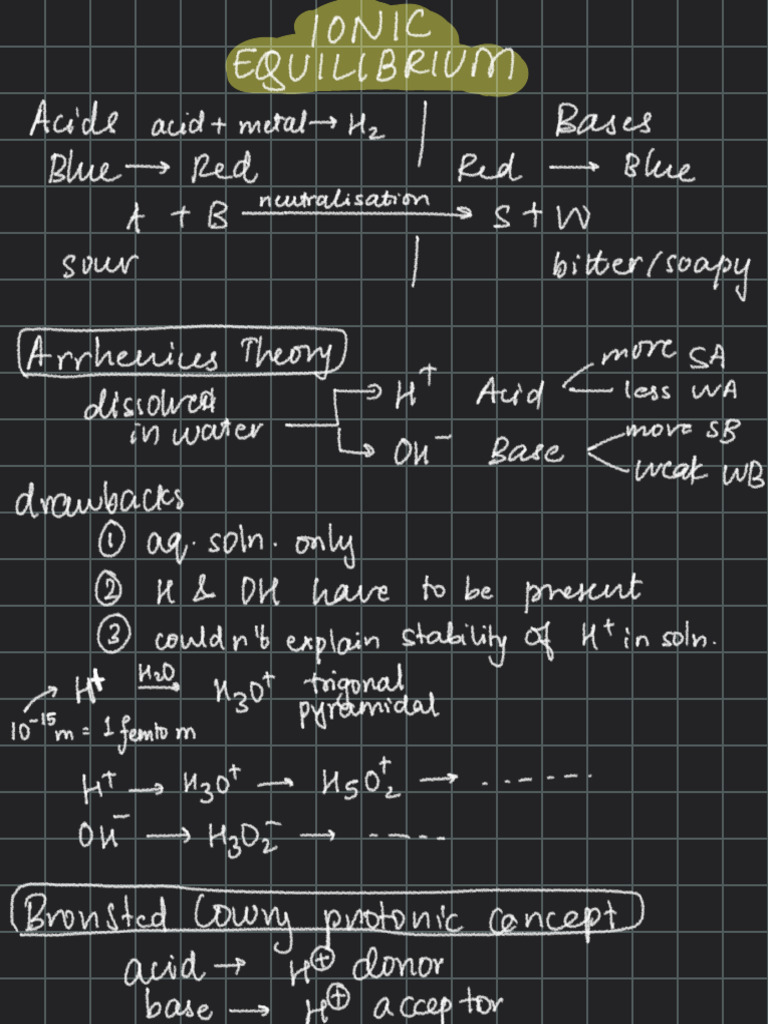 IONIC
EQUILIBRIUM
Acids acid + metal → H₂ | Bases
Blue → Red Red → Blue
A + B neutralisation → S + W
sour | bitter/soapy
Arrhenius Theory
dissolved in water → H⁺ Acid < more SA
less WA
→ OH⁻ Base < more SB
weak WB
drawbacks
① aq. soln. only
② H & OH have to be present
③ couldn't explain stability of H⁺ in soln.
H⁺ H₂O → H₃O⁺ trigonal pyramidal
10⁻¹⁵ m = 1 femto m
H⁺ → H₃O⁺ → H₅O₂⁺ → ------
OH⁻ → H₃O₂⁻ → -----
Bronsted Lowry protonic concept
acid → H⊕ donor
base → H⊕ acceptor